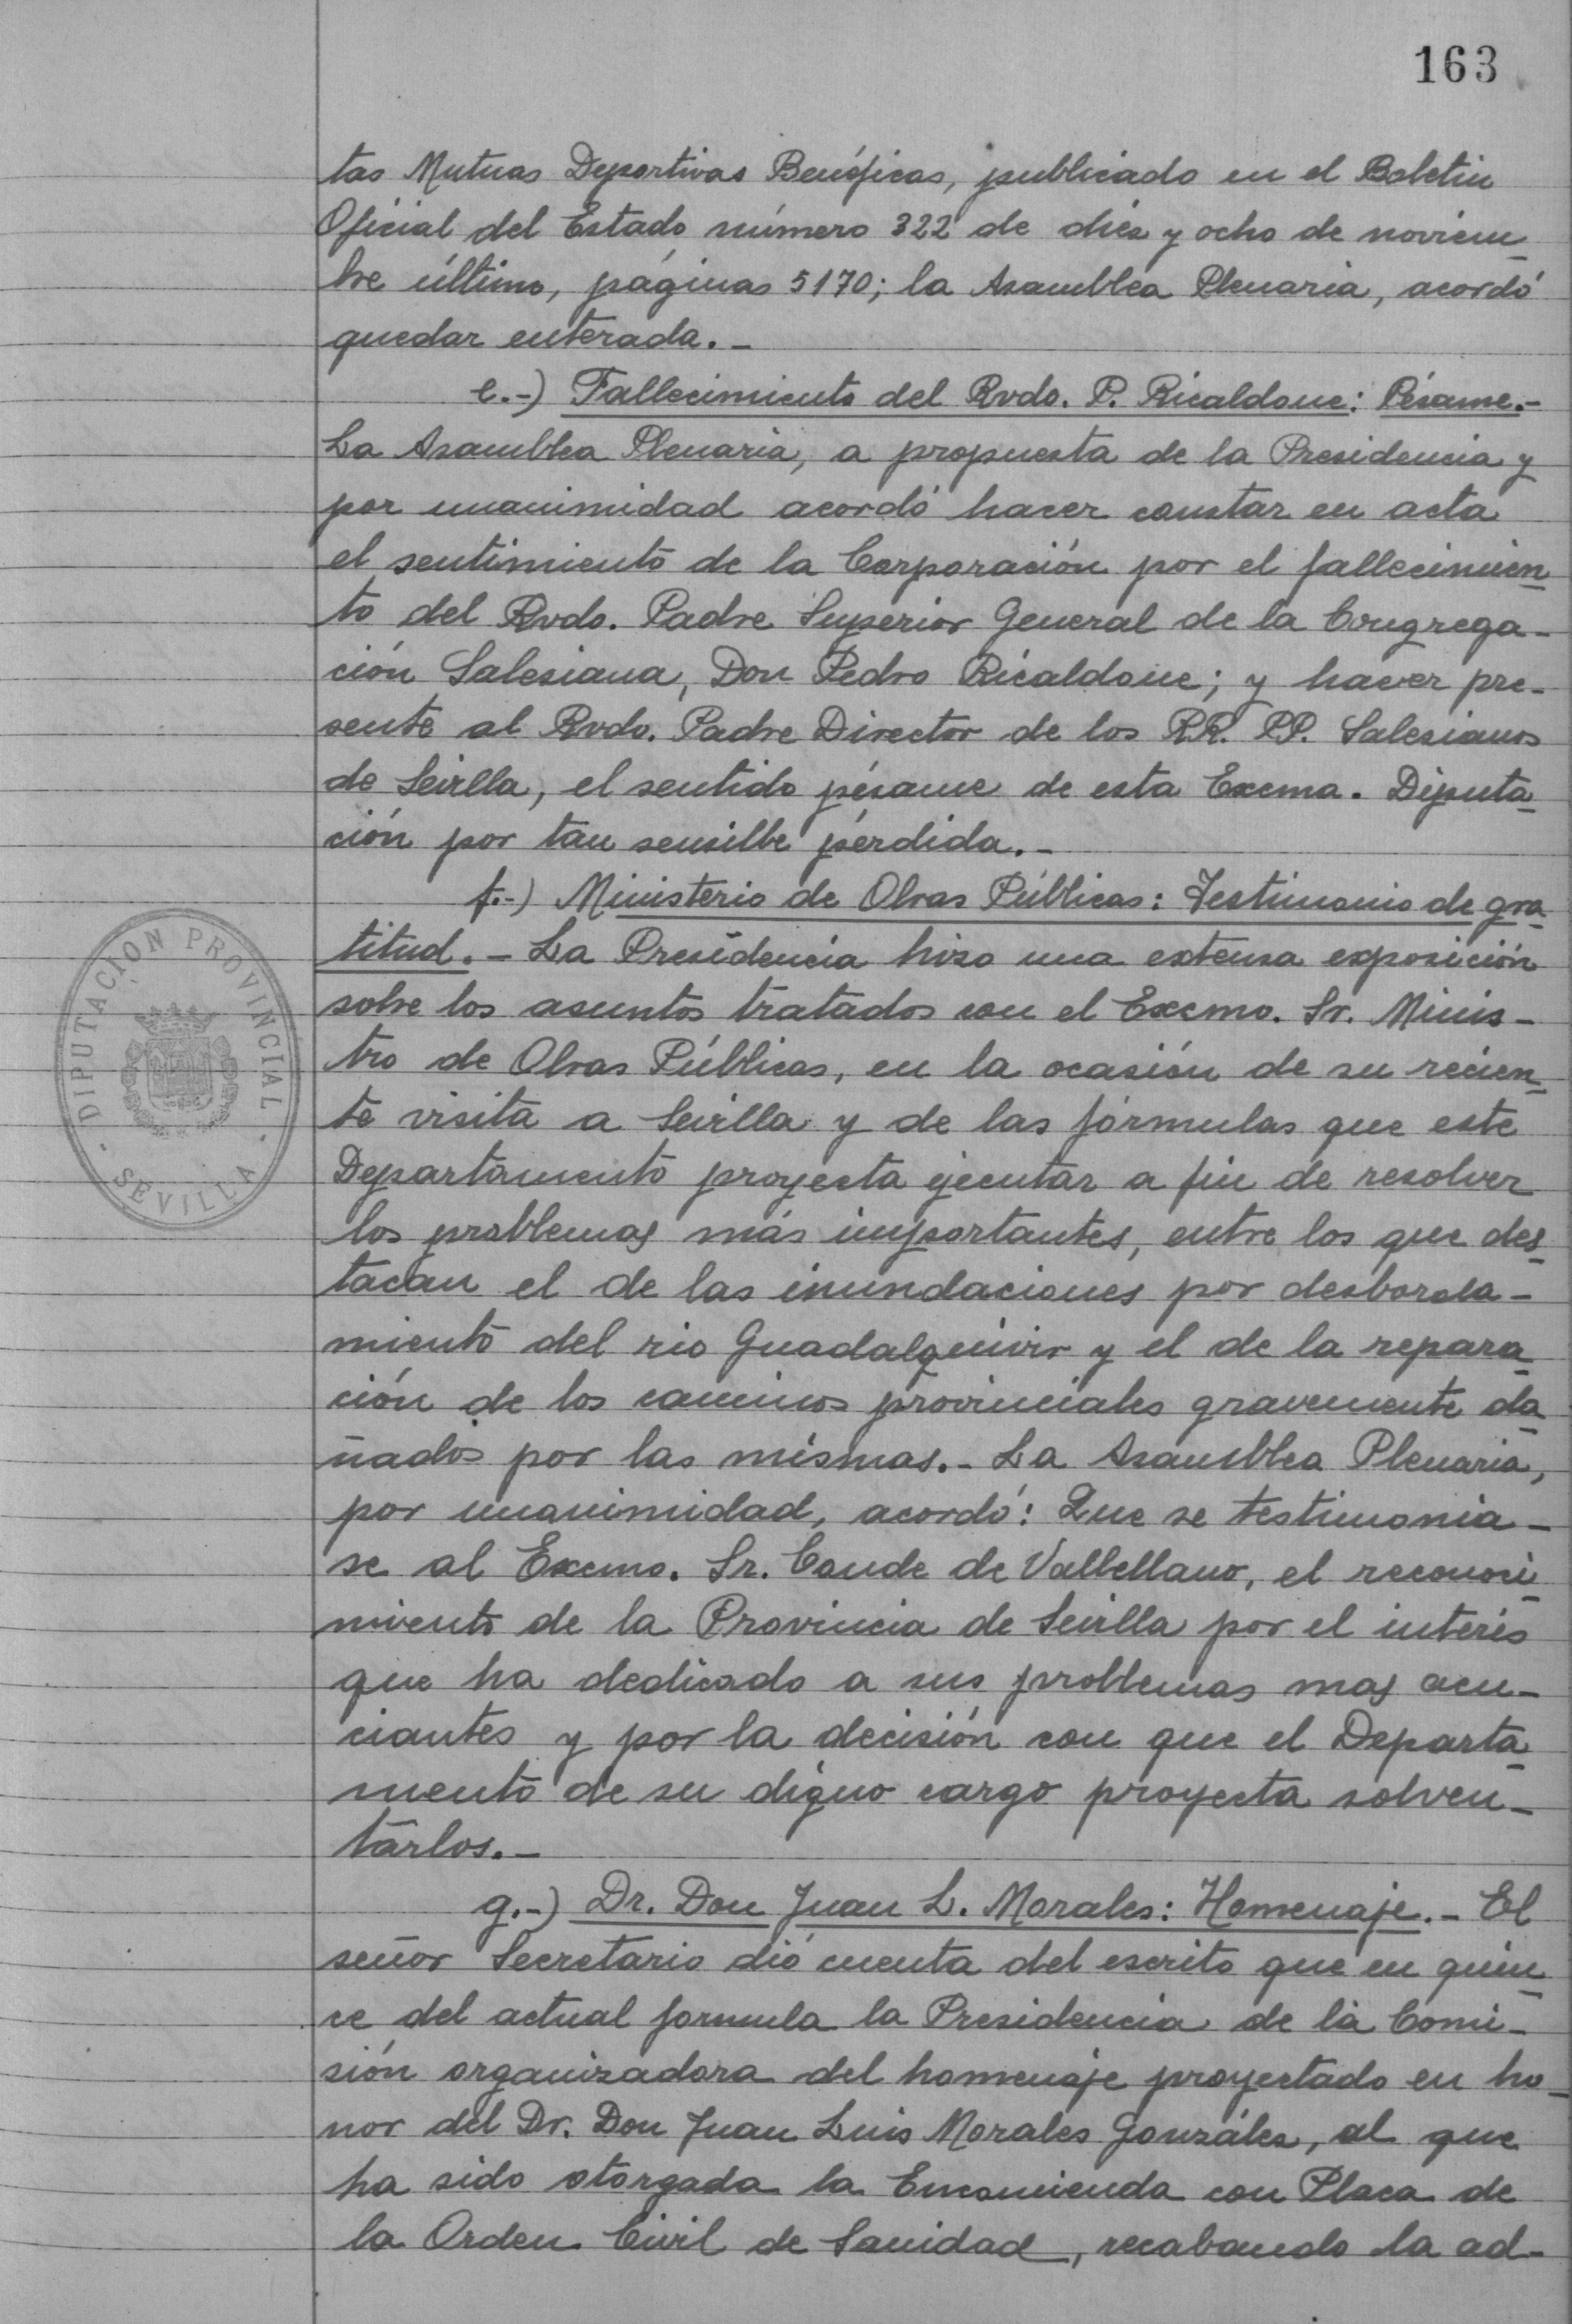 163
tas Mutuas Deportivas Benéficas, publicado en el Boletin
Oficial del Estado número 322 de diez y ocho de noviem-
bre último, páginas 5170; la Asamblea Plenaria, acordó
quedar enterada.-
e.-) Fallecimiento del Rvdo. P. Ricaldone: Pésame.-
La Asamblea Plenaria, a propuesta de la Presidencia y
por unanimidad acordó hacer constar en acta
el sentimiento de la Corporación por el fallecimien-
to del Rvdo. Padre Superior General de la Congrega-
ción Salesiana, Don Pedro Ricaldone; y hacer pre-
sente al Rvdo. Padre Director de los RR. PP. Salesianos
de Sevilla, el sentido pésame de esta Excma. Diputa-
ción por tan sensilbe pérdida.-
f.-) Ministerio de Obras Públicas: Testimonio de gra-
titud.- La Presidencia hizo una extensa exposición
sobre los asuntos tratados con el Excmo. Sr. Minis-
tro de Obras Públicas, en la ocasión de su recien-
te visita a Sevilla y de las fórmulas que este
Departamento proyecta ejecutar a fin de resolver
los problemas más importantes, entre los que des-
tacan el de las inundaciones por desborda-
miento del rio Guadalquivir y el de la repara-
ción de los caminos provinciales gravemente da-
ñados por las mismas.- La Asamblea Plenaria,
por unanimidad, acordó: Que se testimonia-
se al Excmo. Sr. Conde de Vallellano, el reconoci-
miento de la Provincia de Sevilla por el interés
que ha dedicado a sus problemas mas acu-
ciantes y por la decisión con que el Departa-
mento de su digno cargo proyecta solven-
tarlos.-
g.-) Dr. Don Juan L. Morales: Homenaje.- El
señor Secretario dió cuenta del escrito que en quin-
ce del actual formula la Presidencia de la Comi-
sión organizadora del homenaje proyectado en ho-
nor del Dr. Don Juan Luis Morales González, al que
ha sido otorgada la Encomienda con Placa de
la Orden Civil de Sanidad, recabando la ad-
DIPUTACION PROVINCIAL
- SEVILLA -